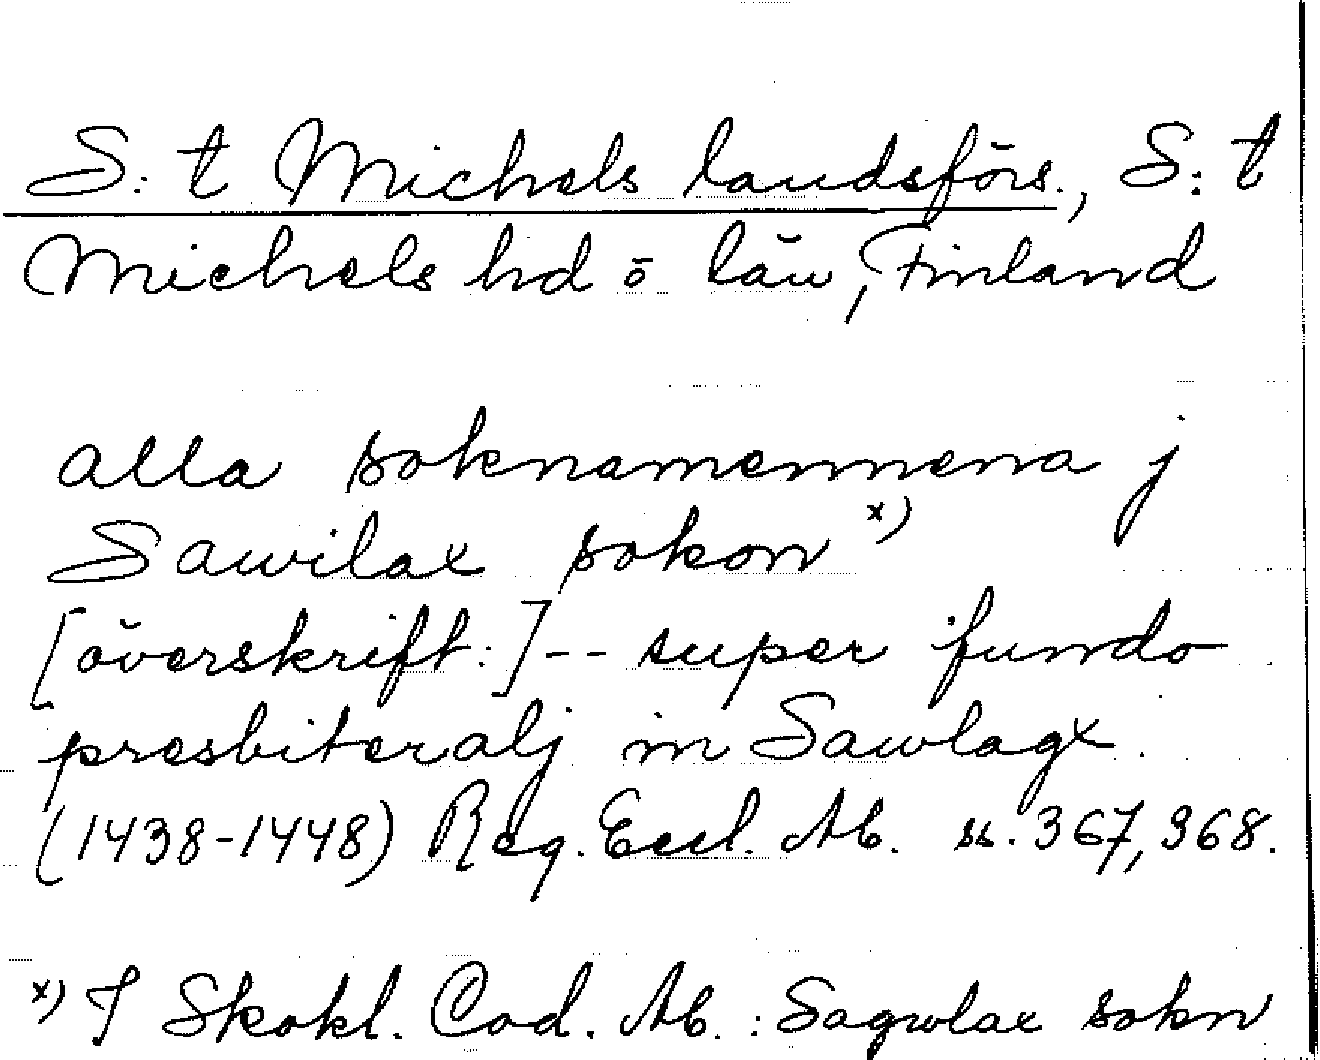 S:t Michels landsförs., S:t
Michels hd o län, Finland
alla soknamennena j
Sawilax sokon x)
[överskrift:] -- super fundo
presbiteralj in Sawlagx.
(1438-1448) Reg. Eccl. Ab. ss. 367, 368.
x) I Skokl. Cod. Ab.: Sagwlax sokn